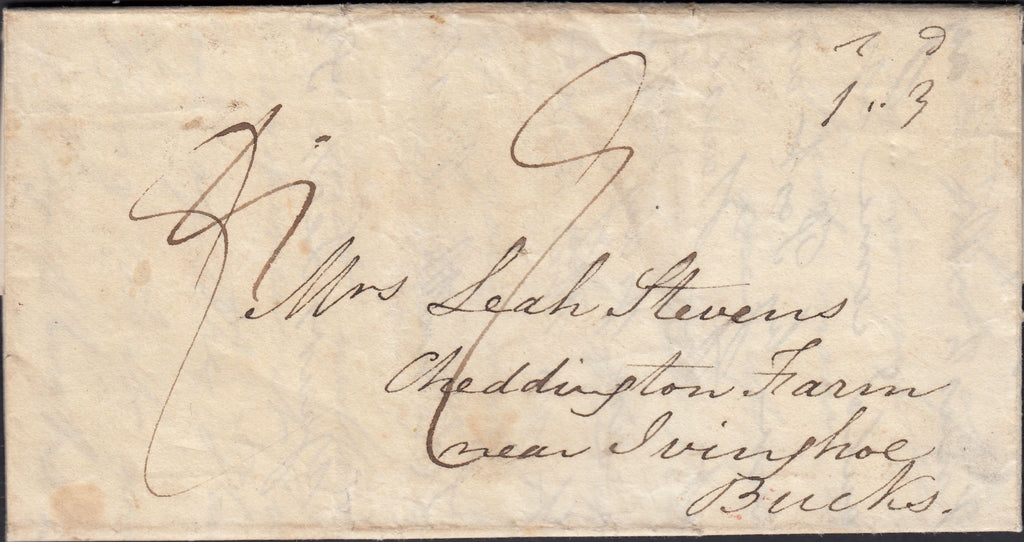 s d
1 " 3
Mrs Leah Stevens
Cheddington Farm
near Ivinghoe
Bucks.